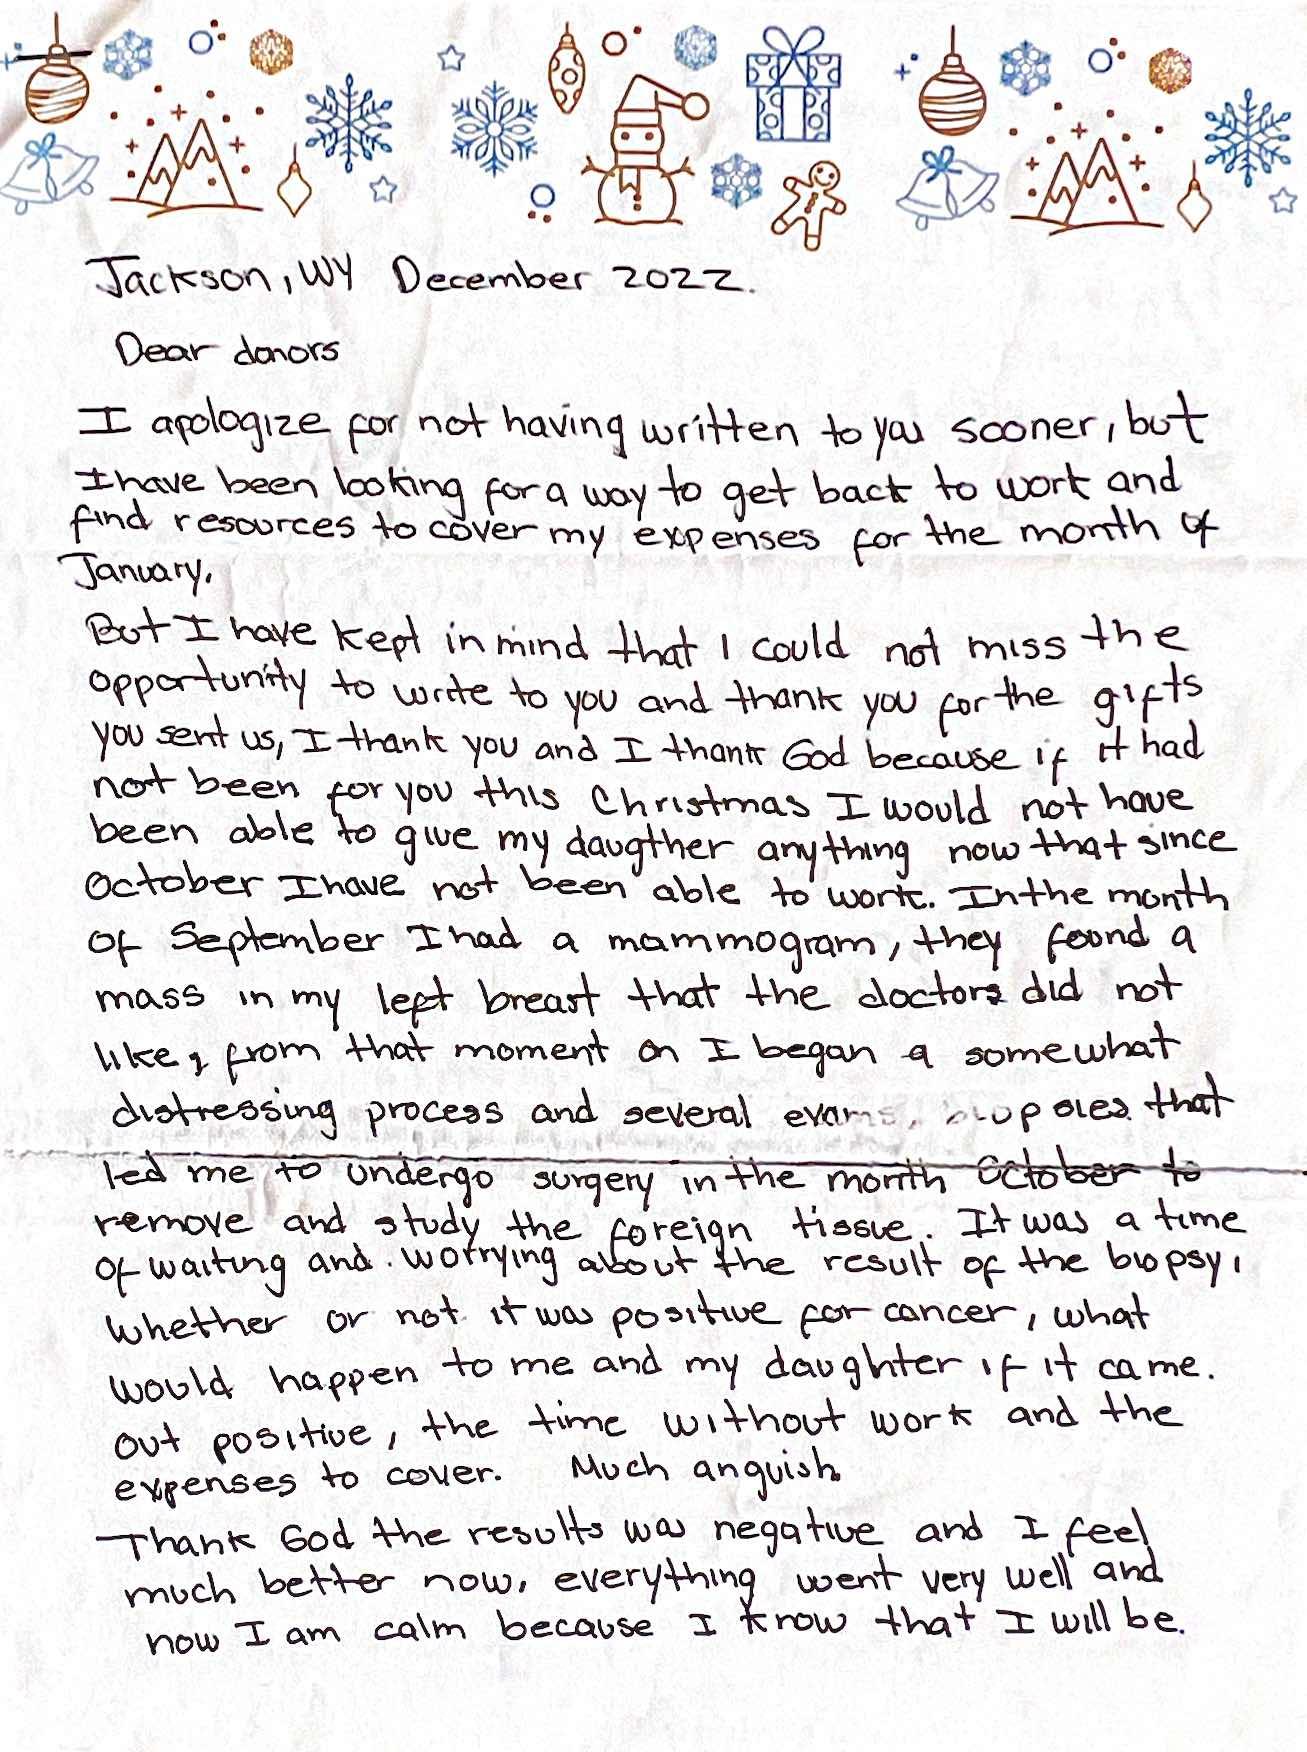 Jackson, WY December 2022.
Dear donors
I apologize for not having written to you sooner, but
I have been looking for a way to get back to work and
find resources to cover my expenses for the month of
January.
But I have kept in mind that I could not miss the
opportunity to write to you and thank you for the gifts
you sent us, I thank you and I thank God because if it had
not been for you this Christmas I would not have
been able to give my daugther anything now that since
October I have not been able to work. In the month
of September I had a mammogram, they found a
mass in my left breast that the doctors did not
like, from that moment on I began a somewhat
distressing process and several exams, biopsies that
led me to undergo surgery in the month October to
remove and study the foreign tissue. It was a time
of waiting and worrying about the result of the biopsy,
whether or not it was positive for cancer, what
would happen to me and my daughter if it came.
out positive, the time without work and the
expenses to cover. Much anguish.
Thank God the results was negative and I feel
much better now, everything went very well and
now I am calm because I know that I will be.